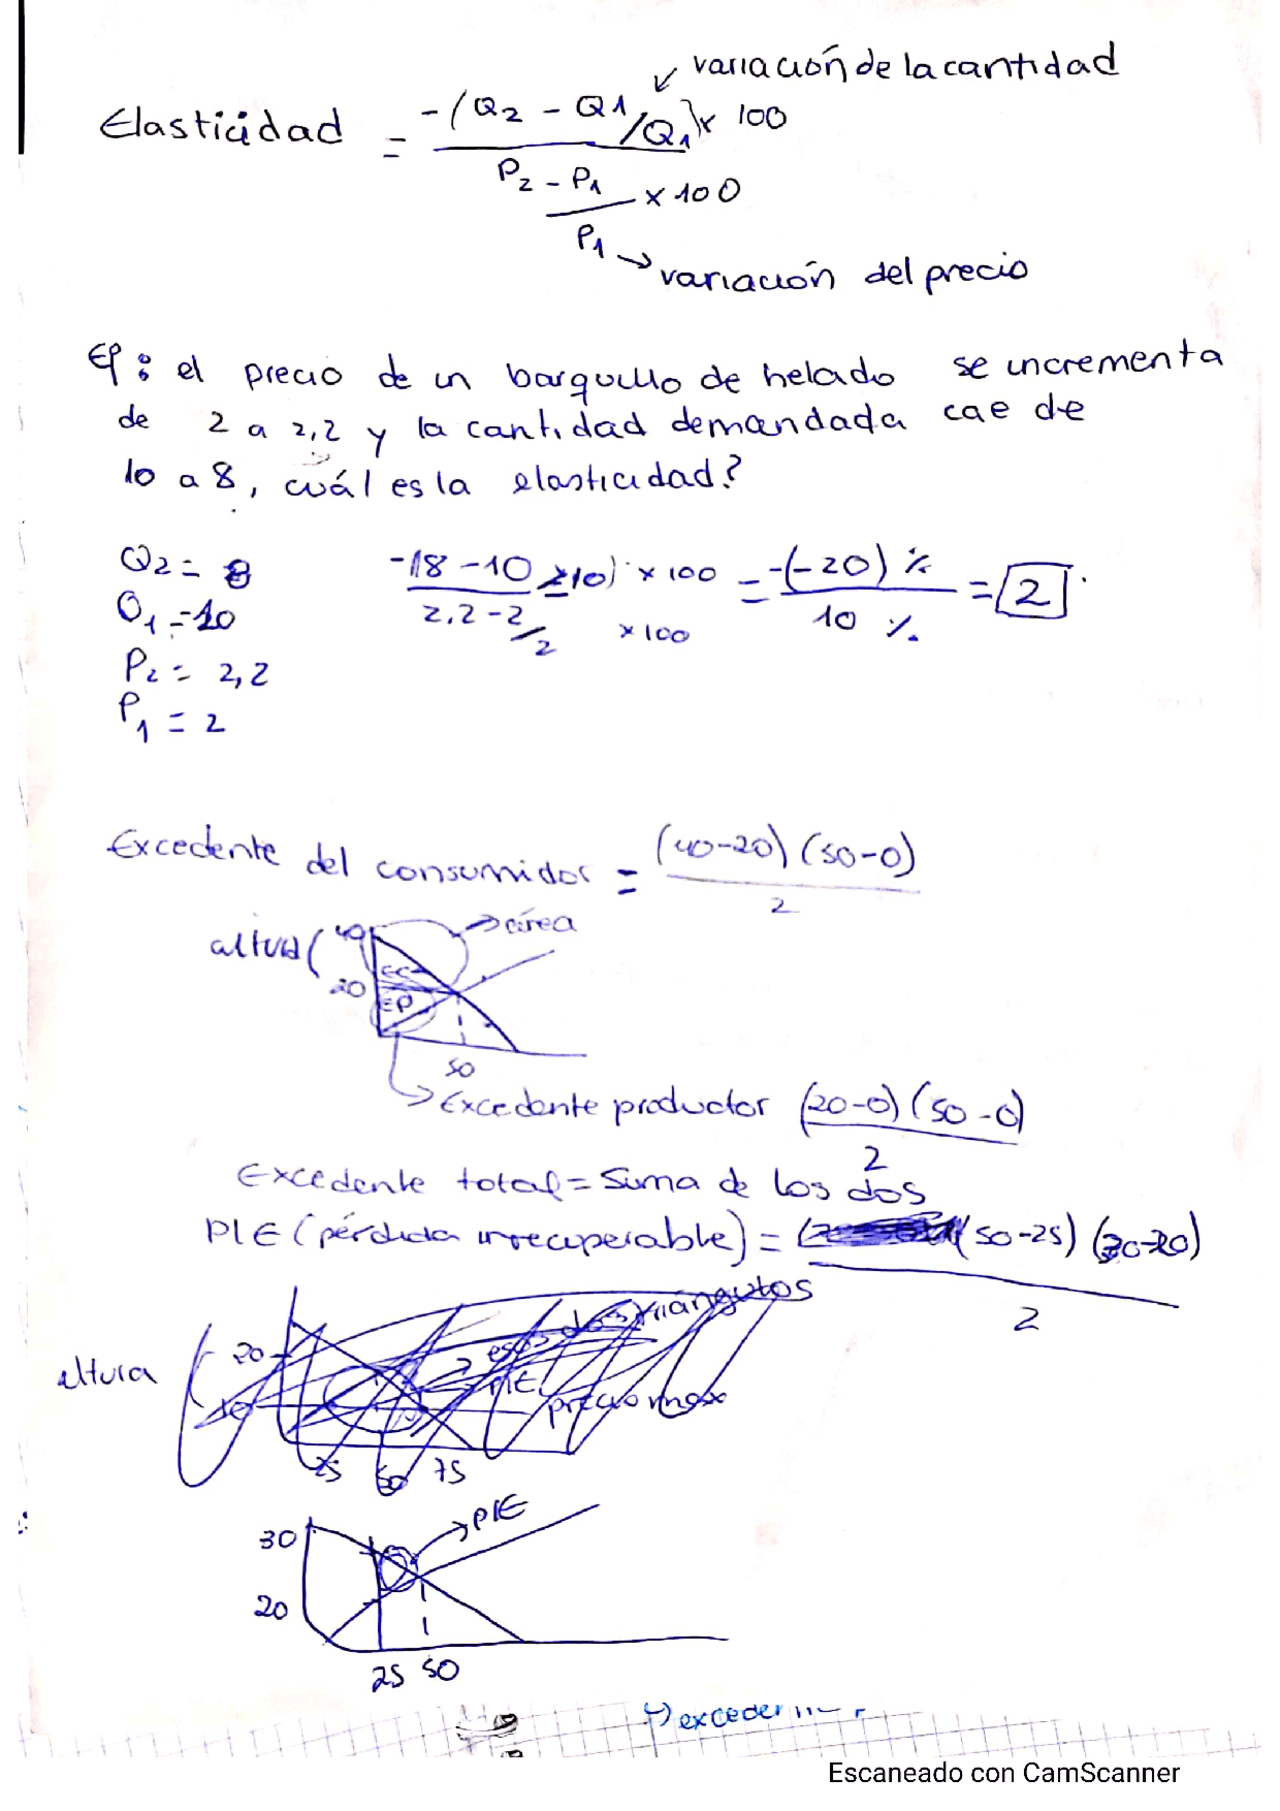 variación de la cantidad
Elasticidad = -(Q2 - Q1/Q1) x 100
P2 - P1 x 100
P1
variación del precio
Ej: el precio de un barquillo de helado se incrementa
de 2 a 2,2 y la cantidad demandada cae de
10 a 8, cuál es la elasticidad?
Q2 = 8
Q1 = 10
P2 = 2,2
P1 = 2
-(8 - 10 / 10) x 100 = -(-20) % = 2
2,2 - 2 / 2 x 100 10 %
Excedente del consumidor = (40-20) (50-0)
2
altura ( 40 área
EC
20
EP
50
Excedente productor (20-0) (50-0)
2
Excedente total = Suma de los dos
PIE (pérdida irrecuperable) = (50-25) (30-20)
2
esos dos triángulos
altura 20
PIE
10 precio max
25 50 75
PIE
30
20
25 50
Escaneado con CamScanner